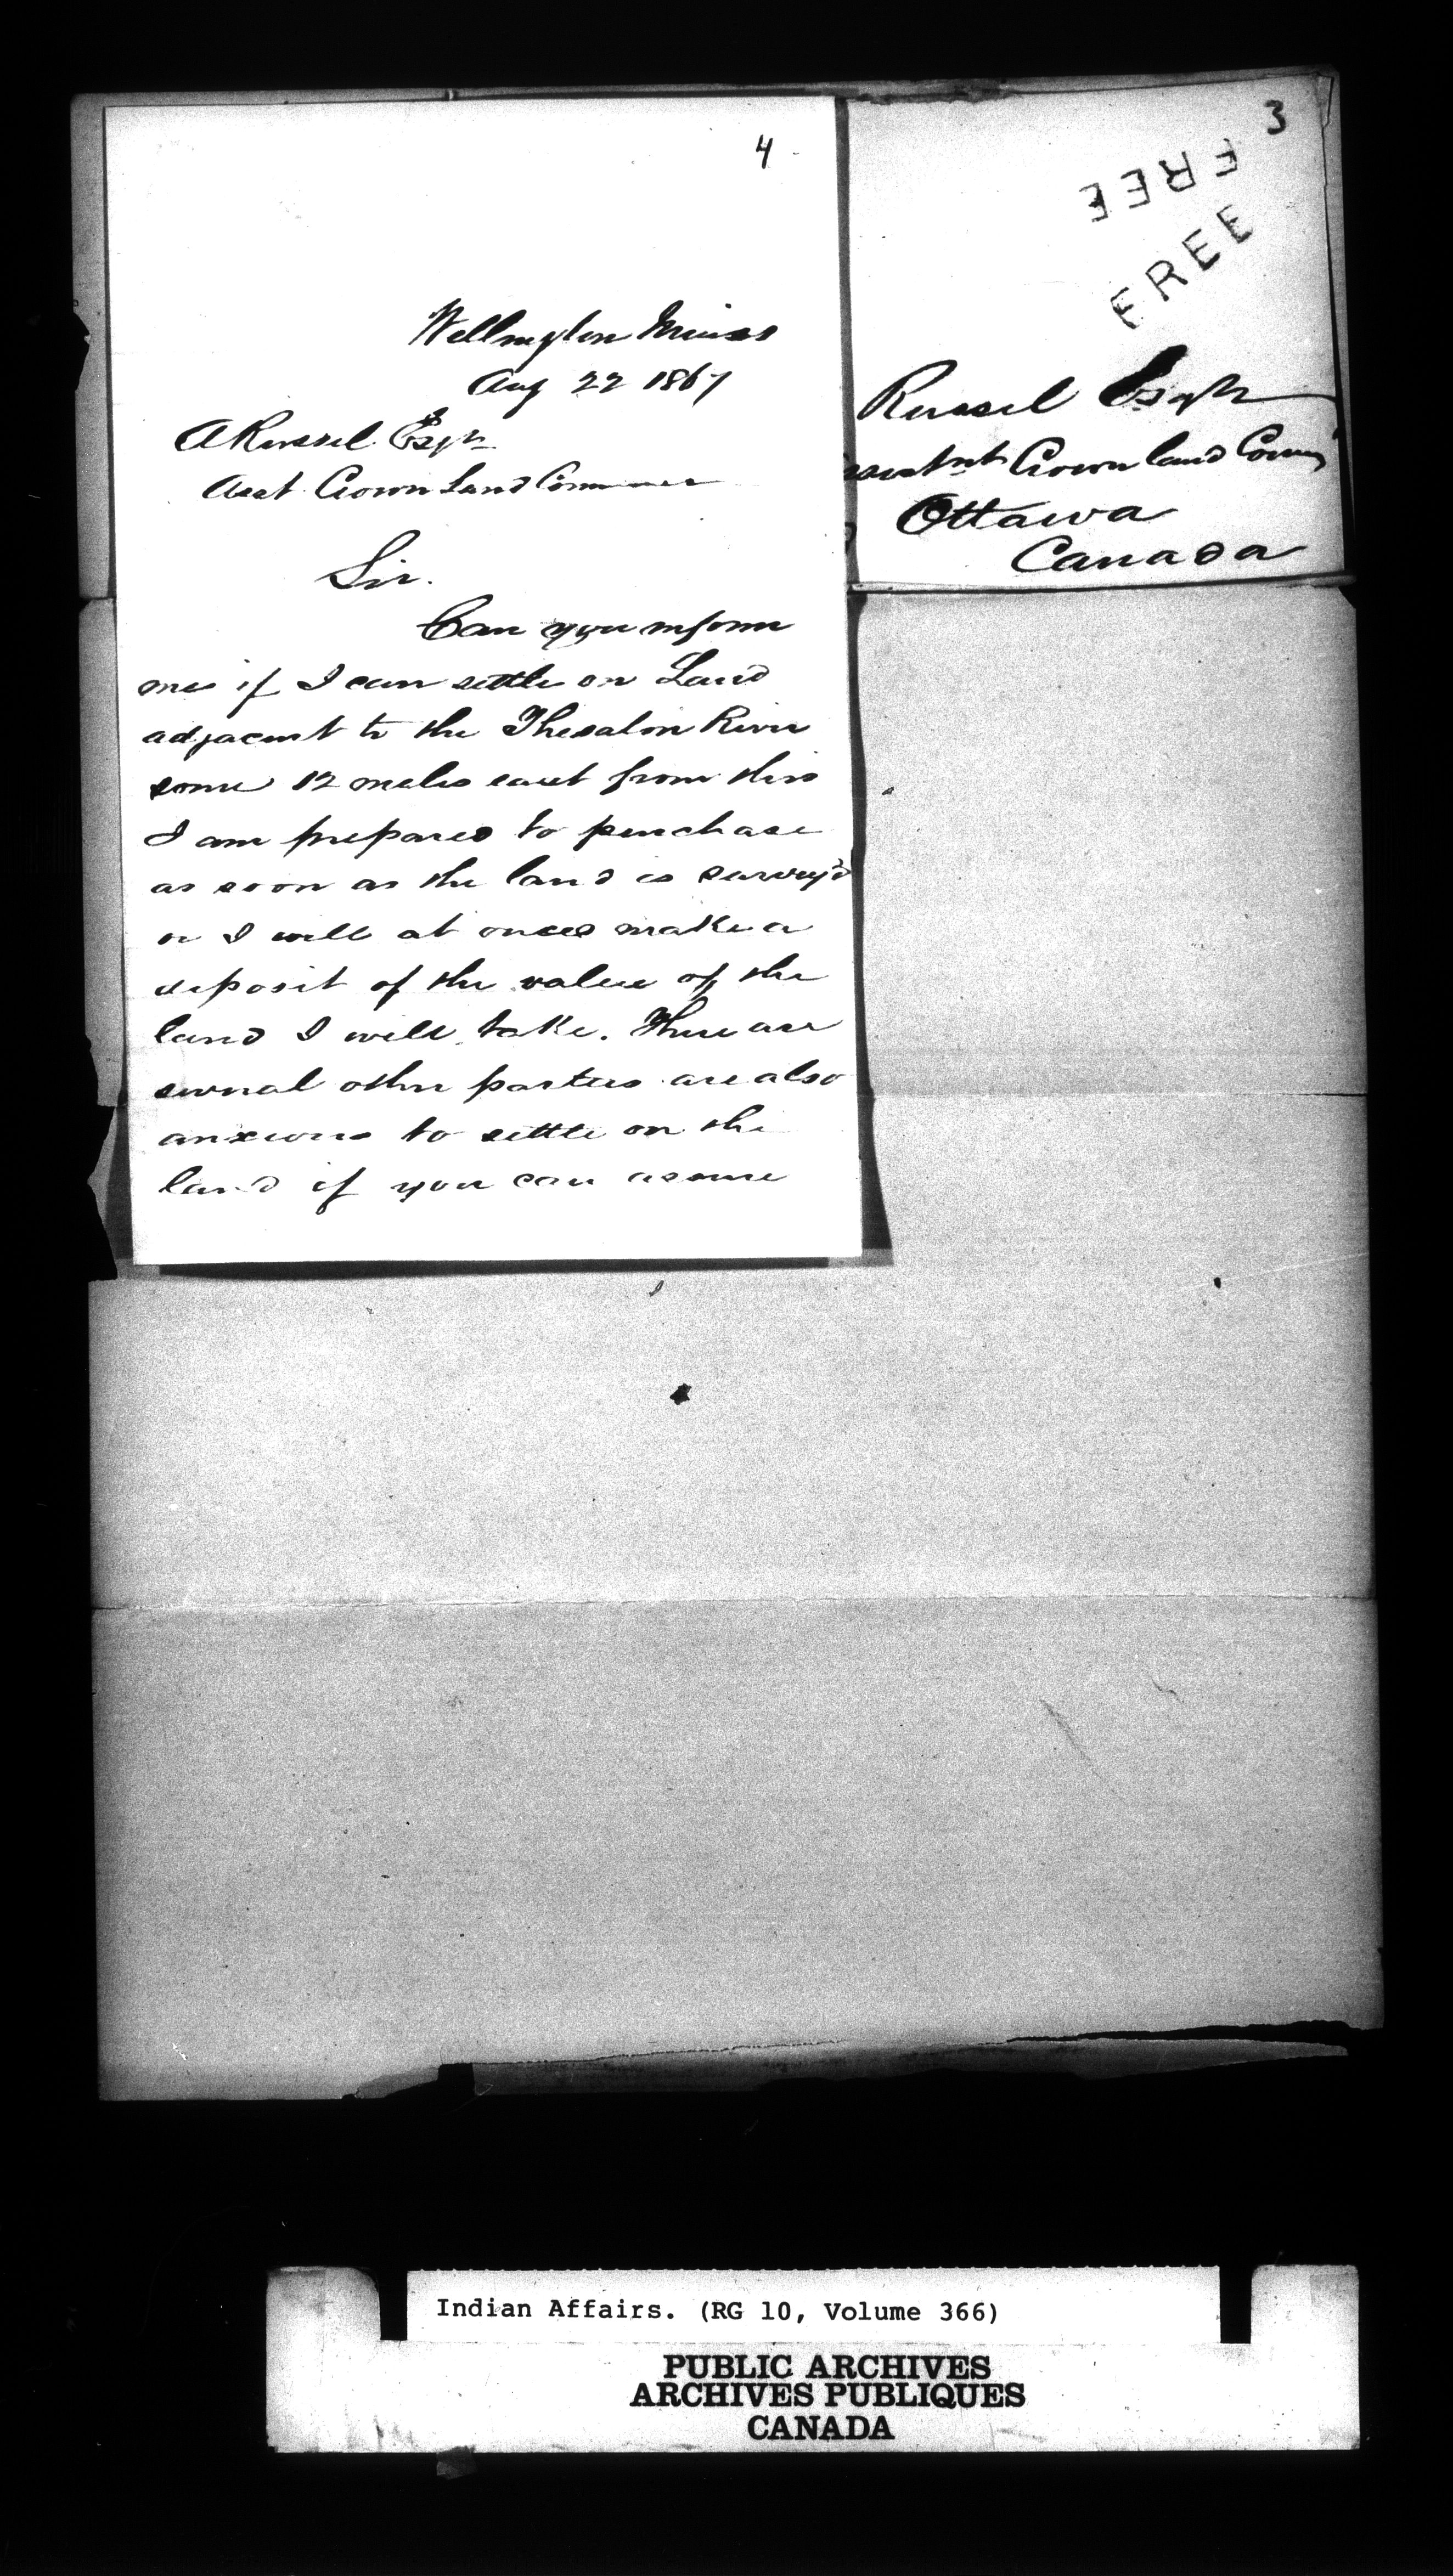 4
Wellington Mines
Aug 22 1867
A Russel Esqr
Asst Crown Land Commner
Sir.
Can you inform
me if I can settle on Land
adjacent to the Thesalon River
some 12 miles east from this
I am prepared to purchase
as soon as the land is survey'd
or I will at once make a
deposit of the value of the
land I will take. There are
several other parties are also
anxious to settle on the
land if you can assure
3
FREE
FREE
Russel Esqr
Crown land Comm
Ottawa
Canada
Indian Affairs. (RG 10, Volume 366)
PUBLIC ARCHIVES
ARCHIVES PUBLIQUES
CANADA